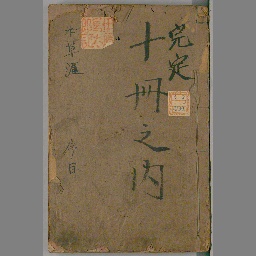 完定
十冊之内
本草滙
序目